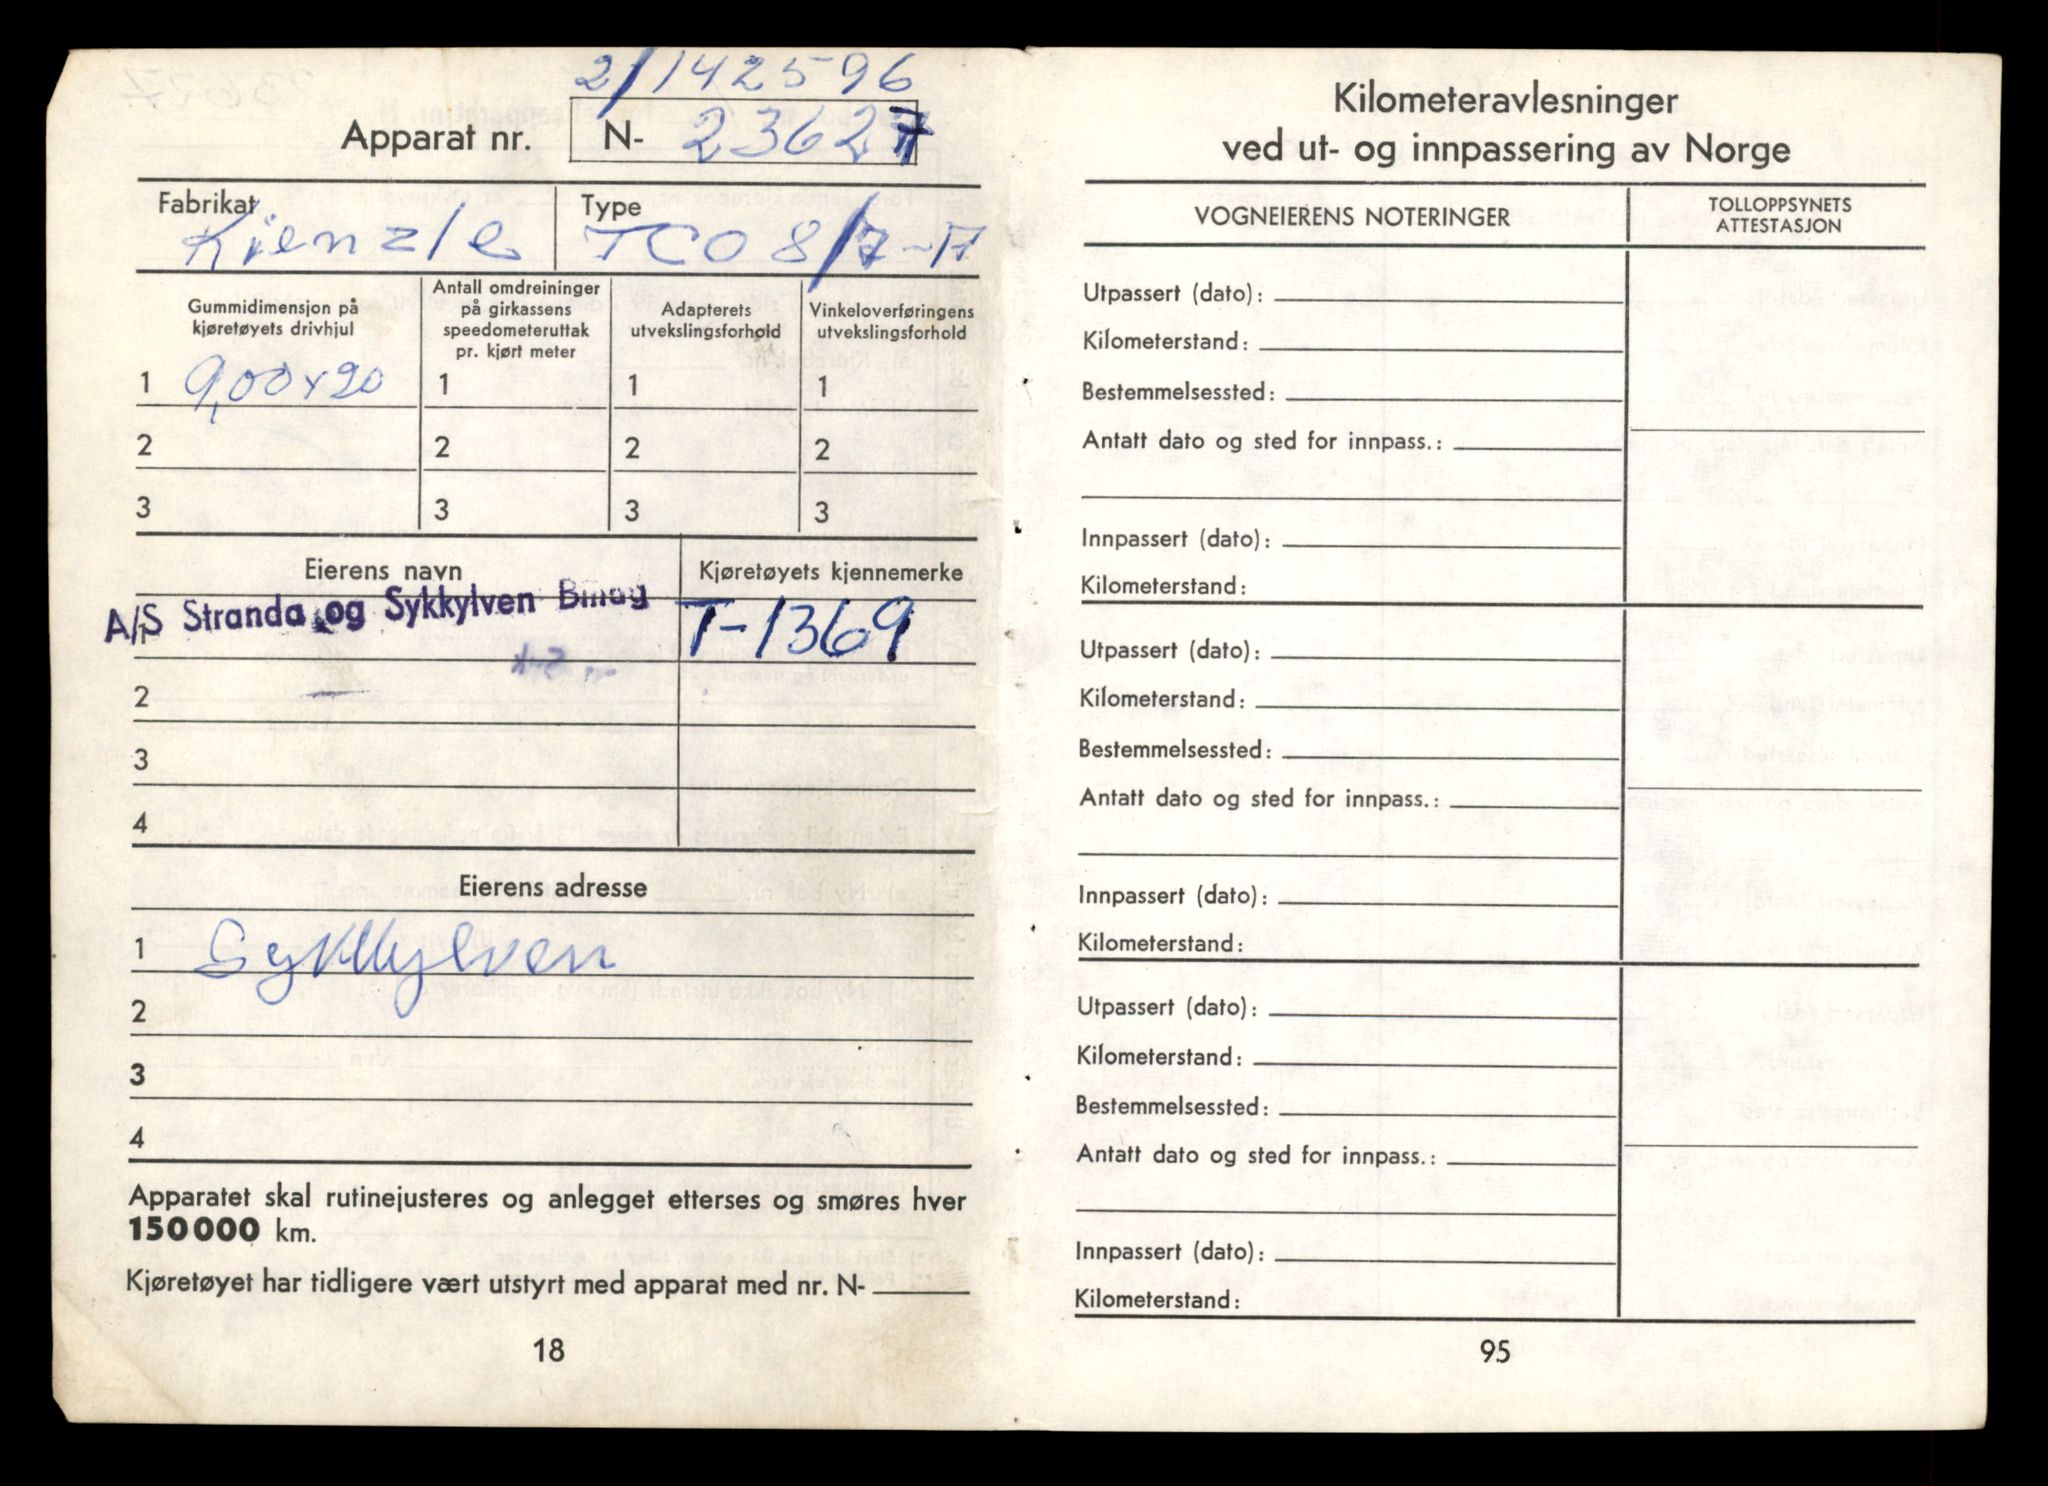 2/142596
Apparat nr. N- 23627
Fabrikat Type
Kienzle TCO 8/7-17
Gummidimensjon på kjøretøyets drivhjul
Antall omdreininger på girkassens speedometeruttak pr. kjørt meter
Adapterets utvekslingsforhold
Vinkeloverføringens utvekslingsforhold
1 9,00x20 1 1 1
2 2 2 2
3 3 3 3
Eierens navn Kjøretøyets kjennemerke
A/S Stranda og Sykkylven T-1369
2
3
4
Eierens adresse
1 Sykkylven
2
3
4
Apparatet skal rutinejusteres og anlegget etterses og smøres hver
150000 km.
Kjøretøyet har tidligere vært utstyrt med apparat med nr. N-
18
Kilometeravlesninger
ved ut- og innpassering av Norge
VOGNEIERENS NOTERINGER
TOLLOPPSYNETS
ATTESTASJON
Utpassert (dato):
Kilometerstand:
Bestemmelsessted:
Antatt dato og sted for innpass.:
Innpassert (dato):
Kilometerstand:
Utpassert (dato):
Kilometerstand:
Bestemmelsessted:
Antatt dato og sted for innpass.:
Innpassert (dato):
Kilometerstand:
Utpassert (dato):
Kilometerstand:
Bestemmelsessted:
Antatt dato og sted for innpass.:
Innpassert (dato):
Kilometerstand:
95